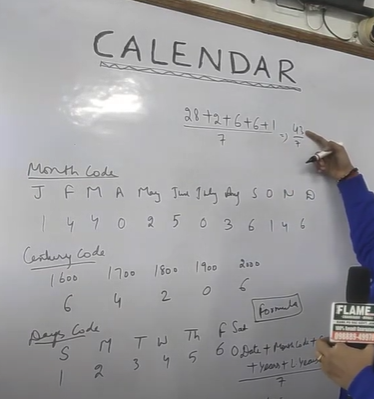 CALENDAR
28+2+6+6+1
7
=> 43
7
Month Code
J F M A May June July Aug S O N D
1 4 4 0 2 5 0 3 6 1 4 6
Century Code
1600 1700 1800 1900 2000
6 4 2 0 6
Formula
Days Code
S M T W Th F Sat
1 2 3 4 5 6 0
Date + Month Code +
+ Years + L Years
7
FLAME